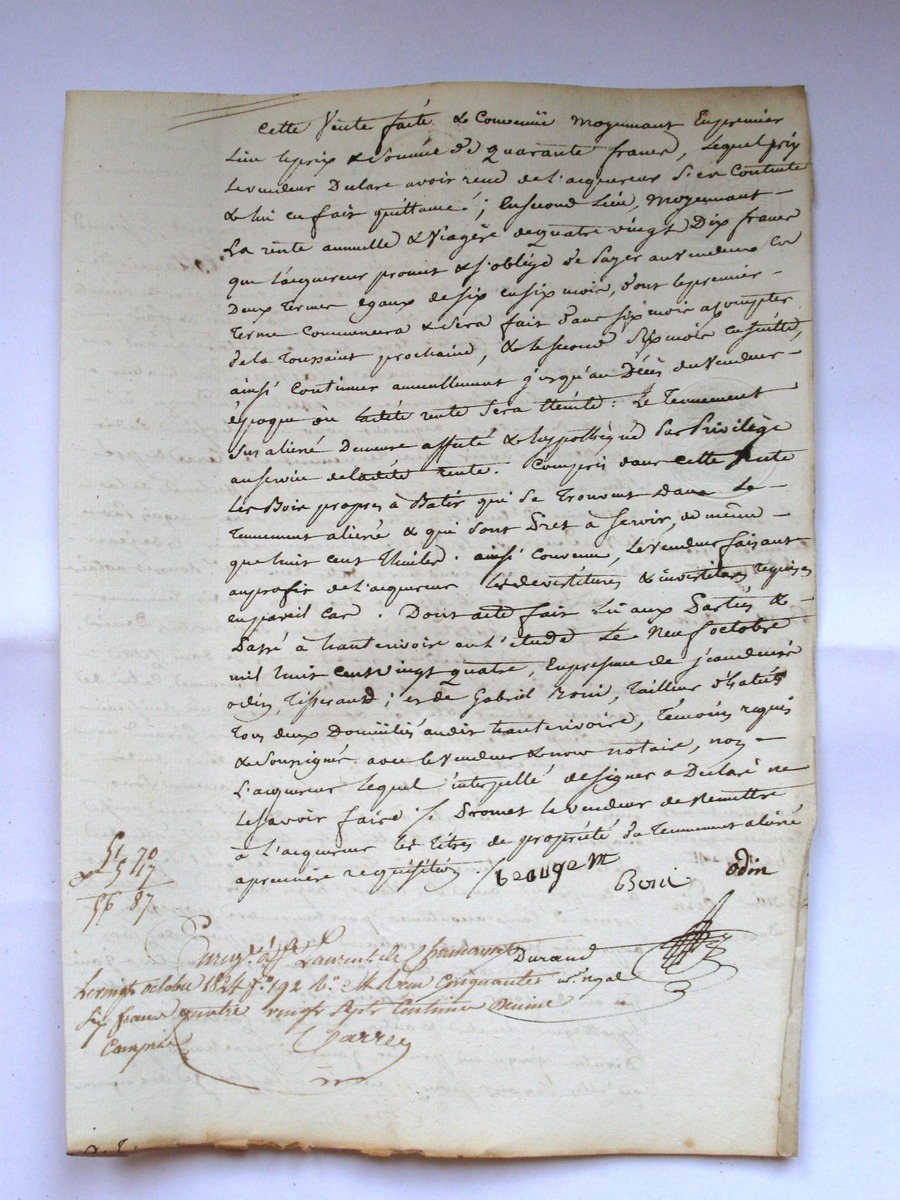 Cette Vente faite & Convenüe moyennant En premier
Lieu le prix & Somme de quarante francs, Lequel prix
Le vendeur Declare avoir reçu de l'acquereur S'en Contente
& lui en fait quittance ; En Second Lieu, moyennant
La rente annuelle & viagère de quatre vingt Dix francs
que L'acquereur promet & s'oblige de payer au vendeur En
Deux Termes égaux de six en six mois, dont le premier
Terme Commencera & Sera fait dans six mois a compter
de la Toussaint prochaine, & le second six mois ensuite,
ainsi Continuer annuellement jusqu'au Décès du vendeur
époque où ladite rente Sera Eteinte : Le Tennement
Sus aliené Demeure affecté & hyppothèqué Par Privilège
au service de ladite rente. Compris dans cette Vente
Les Bois propres à Batir qui se Trouvent Dans Le
Tennement aliené & qui sont Prêt à servir, de même
que huit cent Thuiles. ainsi convenu, Le vendeur faisant
au profit de L'acquereur Les devestitures & investitures requises
en pareil Cas. Dont acte fait Lû aux Parties &
Passé à hauterivoire en L'étude Le Neuf octobre
mil huit cent vingt quatre, En presence de
odin, Tisserand ; et de Gabriel Boni, Tailleur d'habits
Tous deux Domiciliés audit hauterivoire, Témoins requis
& Soussignés avec le vendeur & nous notaire, non
L'acquereur Lequel interpellé de signer a Declaré ne
Le savoir faire /. Promet le vendeur de Remettre
à L'acquereur les titres de propriété du Tennement aliené
a premiere requisition.
Boni odin
51 70
5 17
56 87
Enreg.t à St Laurent de Chamousset
Durand
n.re royal
Le vingt octobre 1824 f.o 192 Reçu Cinquante
Six francs quatre vingt Sept Centimes Decime
Compris